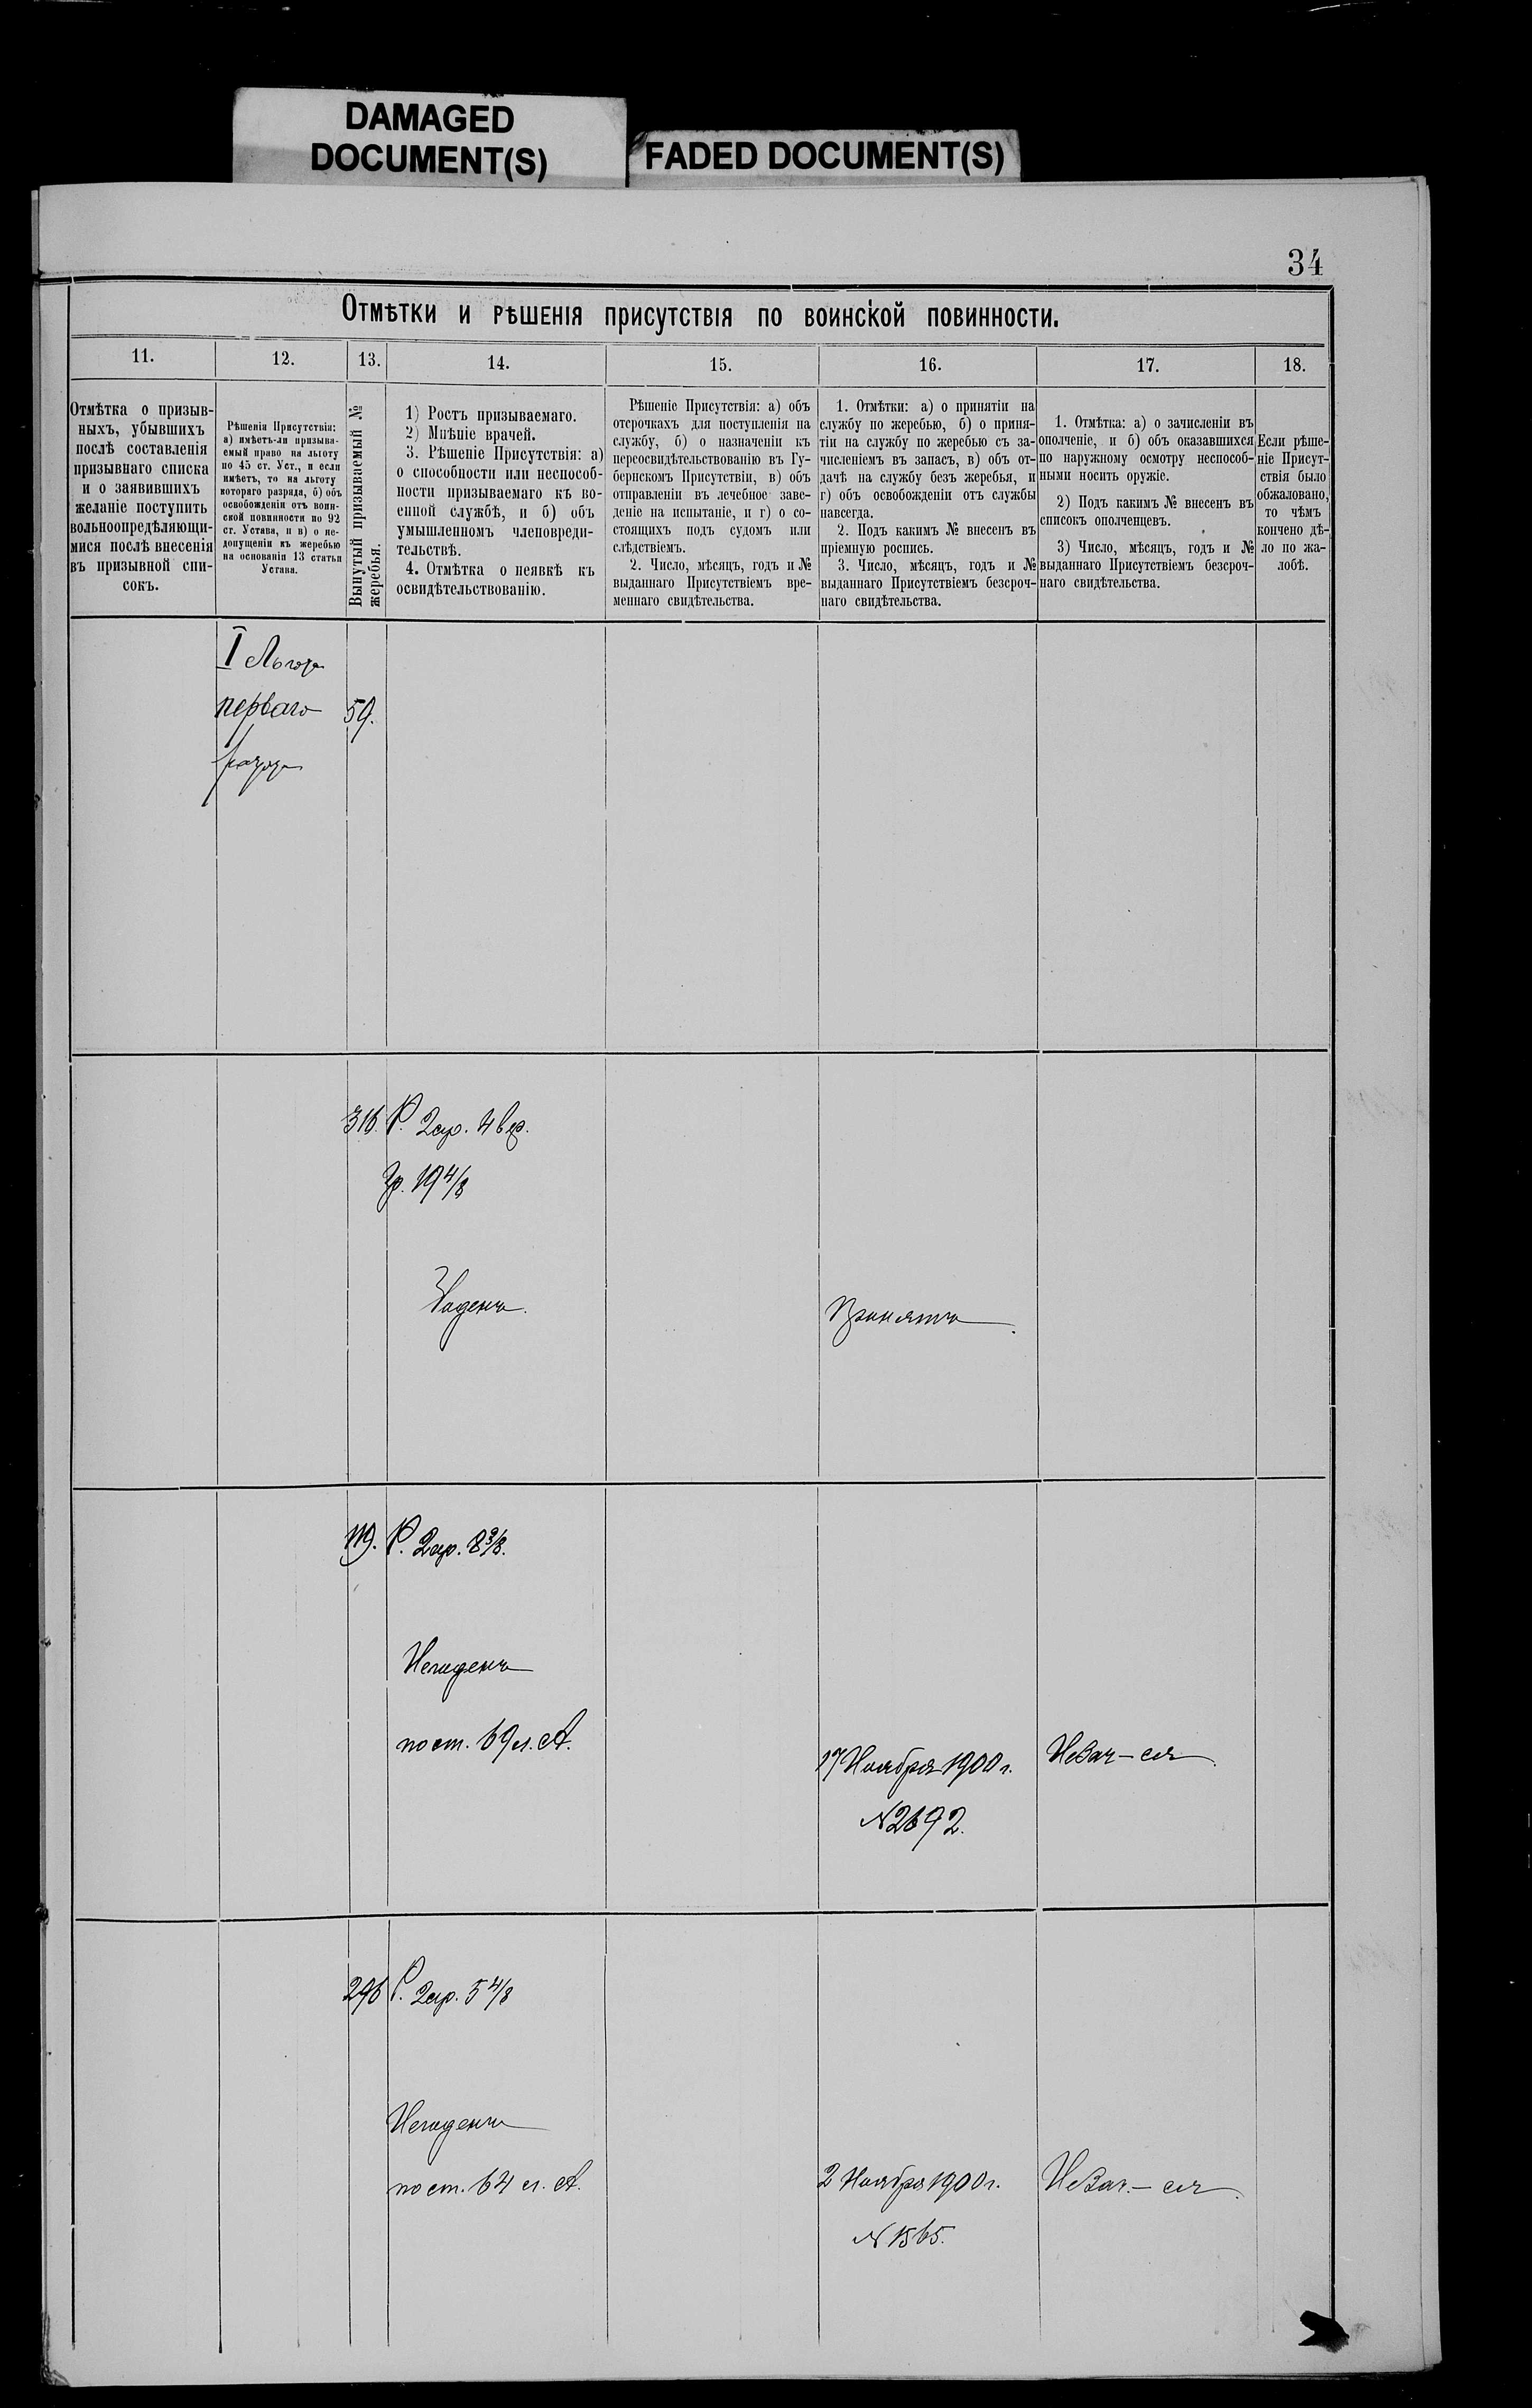 DAMAGED
DOCUMENT(S)
FADED DOCUMENT(S)
34
Отмѣтки и рѣшенія присутствія по воинской повинности.
11.
12.
13.
14.
15.
16.
17.
18.
Отмѣтка о призыв-
ныхъ, убывшихъ
послѣ составленія
призывнаго списка
и о заявившихъ
желаніе поступить
вольноопредѣляющи-
мися послѣ внесенія
въ призывной спи-
сокъ.
Рѣшенія Присутствія:
а) имѣетъ-ли призыва-
емый право на льготу
по 45 ст. Уст., и если
имѣетъ, то на льготу
котораго разряда, б) объ
освобожденіи отъ воин-
ской повинности по 92
ст. Устава, и в) о не-
допущеніи къ жеребью
на основаніи 13 статьи
Устава.
Вынутый призываемый №
жеребья.
1) Ростъ призываемаго.
2) Мнѣніе врачей.
3. Рѣшеніе Присутствія: а)
о способности или неспособ-
ности призываемаго къ во-
енной службѣ, и б) объ
умышленномъ членовреди-
тельствѣ.
4. Отмѣтка о неявкѣ къ
освидѣтельствованію.
Рѣшеніе Присутствія: а) объ
отсрочкахъ для поступленія на
службу, б) о назначеніи къ
переосвидѣтельствованію въ Гу-
бернскомъ Присутствіи, в) объ
отправленіи въ лечебное заве-
деніе на испытаніе, и г) о со-
стоящихъ подъ судомъ или
слѣдствіемъ.
2. Число, мѣсяцъ, годъ и №
выданнаго Присутствіемъ вре-
меннаго свидѣтельства.
1. Отмѣтки: а) о принятіи на
службу по жеребью, б) о приня-
тіи на службу по жеребью съ за-
численіемъ въ запасъ, в) объ от-
дачѣ на службу безъ жеребья, и
г) объ освобожденіи отъ службы
навсегда.
2. Подъ какимъ № внесенъ въ
пріемную роспись.
3. Число, мѣсяцъ, годъ и №
выданнаго Присутствіемъ безсроч-
наго свидѣтельства.
1. Отмѣтка: а) о зачисленіи въ
ополченіе, и б) объ оказавшихся
по наружному осмотру неспособ-
ными носить оружіе.
2) Подъ какимъ № внесенъ въ
списокъ ополченцевъ.
3) Число, мѣсяцъ, годъ и №
выданнаго Присутствіемъ безсроч-
наго свидѣтельства.
Если рѣше-
ніе Присут-
ствія было
обжаловано,
то чѣмъ
кончено дѣ-
ло по жа-
лобѣ.
I Льгота
перваго
разряда
59.
316.
Р. 2 ар. 4 вер.
Гр. 19 4/8
Годенъ.
Принятъ.
119.
Р. 2 ар. 8 3/8.
Негоденъ
по ст. 69 л. А.
17 Ноября 1900 г.
N 2692.
Не Зач-ся.
296
Р. 2 ар. 5 4/8
Негоденъ
по ст. 64 л. А.
2 Ноября 1900 г.
N 1565.
Не Зач.-ся.